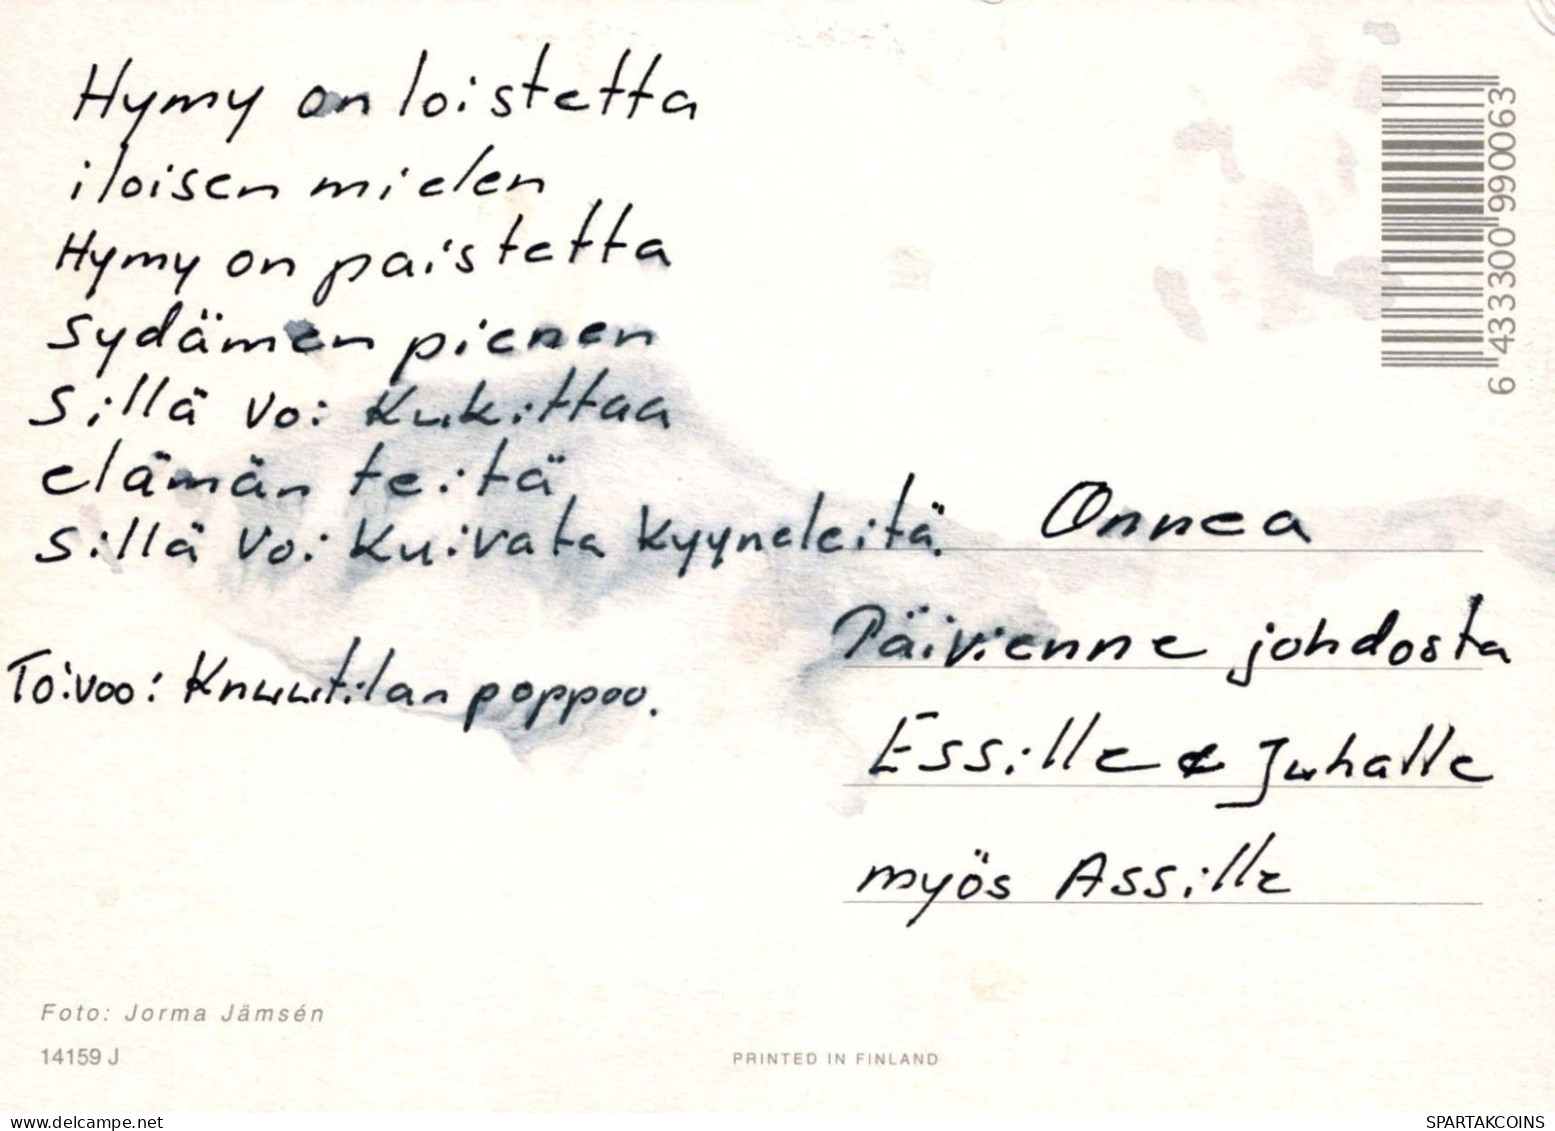 Hymy on loistetta
iloisen mielen
Hymy on paistetta
sydämen pienen
Sillä voi kukittaa
elämän teitä
Sillä voi kuivata kyyneleitä.
Toivoo: Knuutilan poppoo.
Onnea
Päivienne johdosta
Essille & Juhalle
myös Assille
6 433300 990063
Foto: Jorma Jämsén
14159 J
PRINTED IN FINLAND
www.delcampe.net
SPARTAKCOINS